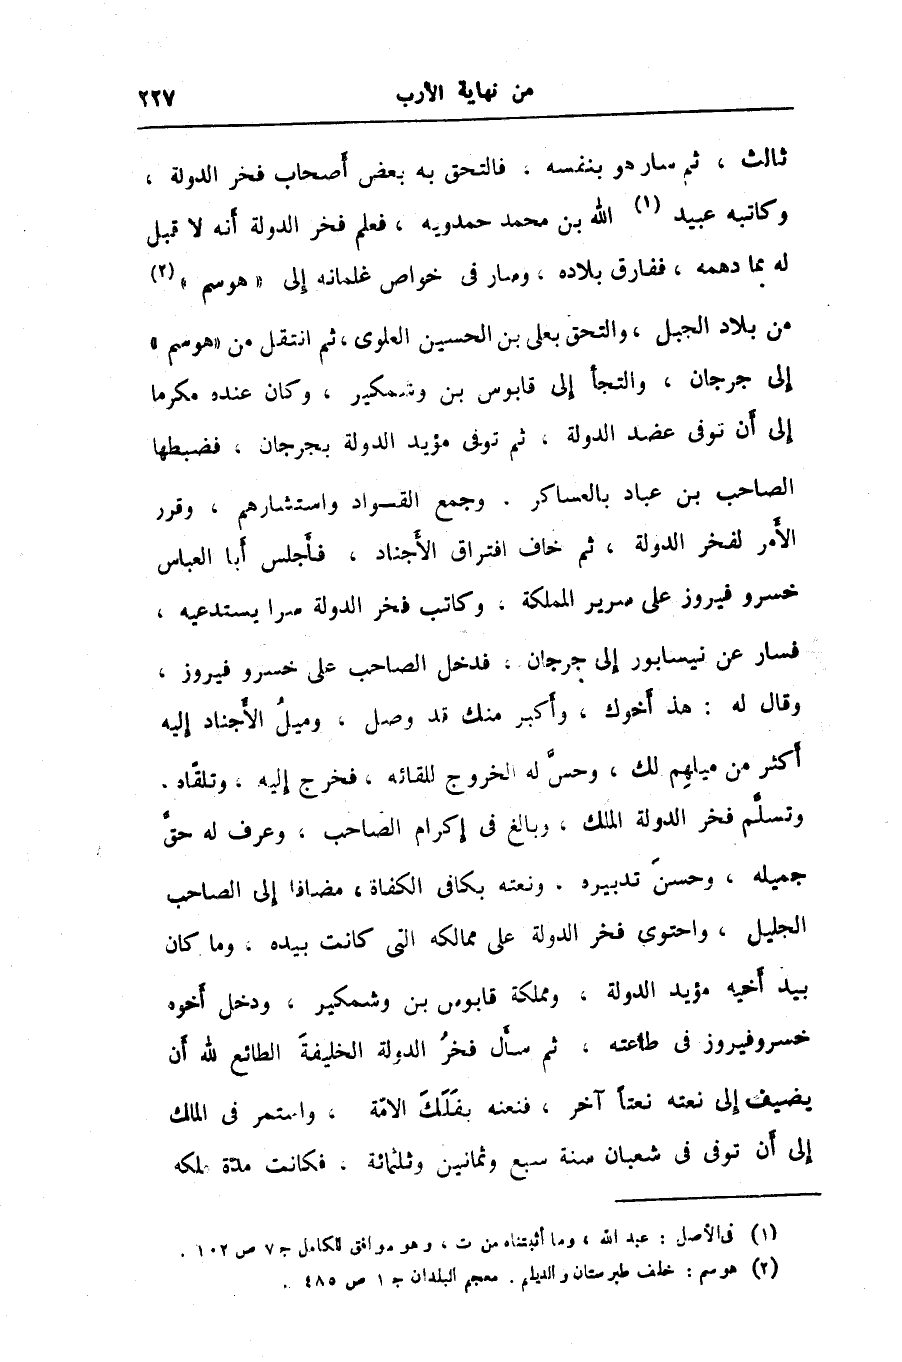 من نهاية الأرب ٢٢٧
ثالث ، ثم سار هو بنفسه ، فالتحق به بعض أصحاب فخر الدولة ،
وكاتبه عبيد (١) الله بن محمد حمدويه ، فعلم فخر الدولة أنه لا قبل
له بما دهمه ، ففارق بلاده ، وسار فى خواص غلمانه إلى « هوسم » (٢)
من بلاد الجبل ، والتحق بعلى بن الحسين العلوى ، ثم انتقل من «هوسم »
إلى جرجان ، والتجأ إلى قابوس بن وشمكير ، وكان عنده مكرما
إلى أن توفى عضد الدولة ، ثم توفى مؤيد الدولة بجرجان ، فضبطها
الصاحب بن عباد بالعساكر . وجمع القسواد واستشارهم ، وقرر
الأمر لفخر الدولة ، ثم خاف افتراق الأجناد ، فأجلس أبا العباس
خسرو فيروز على سرير المملكة ، وكاتب فخر الدولة سرا يستدعيه ،
فسار عن نيسابور إلى جرجان ، فدخل الصاحب على خسرو فيروز ،
وقال له : هذ أخوك ، وأكبر منك قد وصل ، وميلُ الأجناد إليه
أكثر من ميلهم لك ، وحسَّ له الخروج للقائه ، فخرج إليه ، وتلقّاه .
وتسلَّم فخر الدولة الملك ، وبالغ فى إكرام الصاحب ، وعرف له حقَّ
جميله ، وحسنَ تدبيره . ونعته بكافى الكفاة ، مضافا إلى الصاحب
الجليل ، واحتوى فخر الدولة على ممالكه التى كانت بيده ، وما كان
بيد أخيه مؤيد الدولة ، ومملكة قابوس بن وشمكير ، ودخل أخوه
خسروفيروز فى طاعته ، ثم سأل فخرُ الدولة الخليفةَ الطائع لله أن
يضيف إلى نعته نعتاً آخر ، فنعته بفَلَكَ الامّة ، واستمر فى الملك
إلى أن توفى فى شعبان سنة سبع وثمانين وثلثمائة ، فكانت مدّة ملكه
(١) فى الأصل : عبد الله ، وما أثبتناه من ت ، وهو موافق للكامل ج ٧ ص ١٠٢ .
(٢) هوسم : خلف طبرستان والديلم . معجم البلدان ج ١ ص ٤٨٥ .